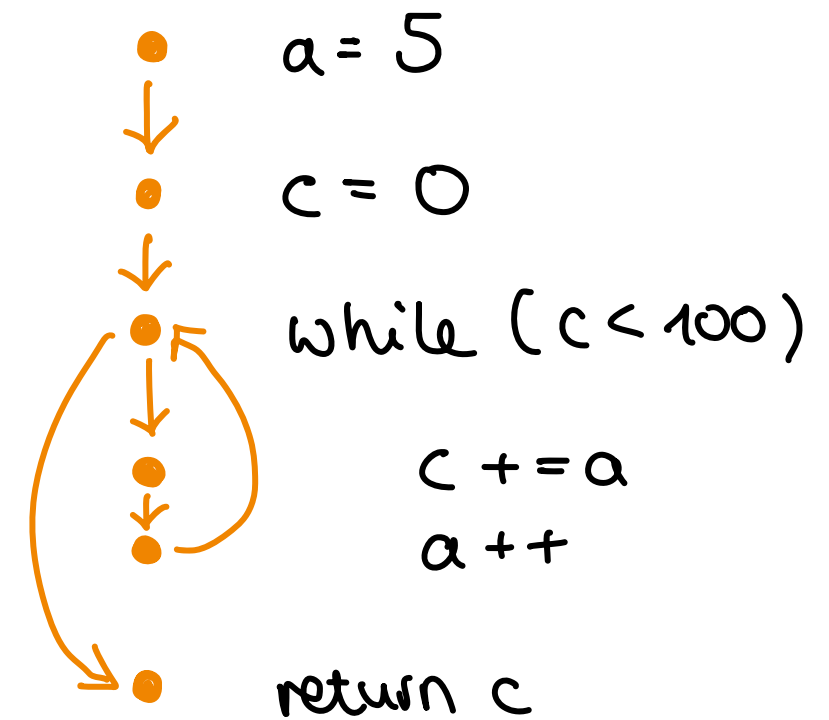 a = 5
c = 0
while (c < 100)
c += a
a ++
return c